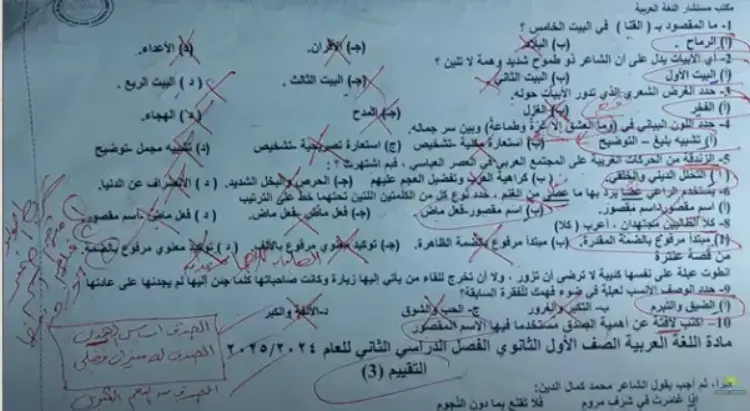 مكتب مستشار اللغة العربية
1- ما المقصود بـ ( القنا ) في البيت الخامس ؟
(أ) الرماح . (ب) البلاد. (جـ) الأقران. (د) الأعداء.
2- أي الأبيات يدل على أن الشاعر ذو طموح شديد وهمة لا تلين ؟
(أ) البيت الأول (ب) البيت الثاني (جـ) البيت الثالث. ( د ) البيت الربع.
3- حدد الغرض الشعري الذي تدور الأبيات حوله.
(أ) الفخر (ب) الغزل (جـ) المدح (د) الهجاء.
4- حدد اللون البياني في (وما العشق إلا غرة وطماعة) وبين سر جماله.
(أ) تشبيه بليغ – التوضيح (ب) استعارة مكنية -تشخيص (ج) استعارة تصريحية -تشخيص (د) تشبيه مجمل -توضيح
5- الزندقة من الحركات الغريبة على المجتمع العربي في العصر العباسي ، فبم اشتهرت؟ :
(أ) التحلل الديني والخلقي (ب) كراهية العرب وتفضيل العجم عليهم (جـ) الحرص والبخل الشديد. ( د ) الانصراف عن الدنيا.
6- يستخدم الراعي عصا يرد بها ما عصى من الغنم ، حدد نوع كل من الكلمتين اللتين تحتهما خط على الترتيب
(أ) اسم مقصور-اسم مقصور. (ب) اسم مقصور-فعل ماض (جـ) فعل ماض -فعل ماض. ( د ) فعل ماض -اسم مقصور.
8- كلا الطالبين مجتهدان ، أعرب ( كلا)
(أ) مبتدأ مرفوع بالضمة المقدرة. (ب) مبتدأ مرفوع بالضمة الظاهرة. (جـ) توكيد معنوي مرفوع بالألف. (د ) توكيد معنوي مرفوع بالضمة
من قصة عنترة
انطوت عبلة على نفسها كئيبة لا ترضى أن تزور ، ولا أن تخرج للقاء من يأتي إليها زيارة وكانت صاحباتها كلما جئن إليها لم يجدنها على عادتها
9- حدد الوصف الأنسب لعبلة في ضوء فهمك للفقرة السابقة؟
(أ) الضيق والتبرم ب- التكبر والغرور ج- الحب والشوق د-الألفة والكبر
10- اكتب لافتة عن أهمية الصدق مستخدما فيها الاسم المقصور
مادة اللغة العربية الصف الأول الثانوي الفصل الدراسي الثاني للعام ٢٠٢٥/٢٠٢٤
التقييم (3)
ثم أجب يقول الشاعر محمد كمال الدين:
إذا غامرت في شرف مروم فلا تقنع بما دون النجوم